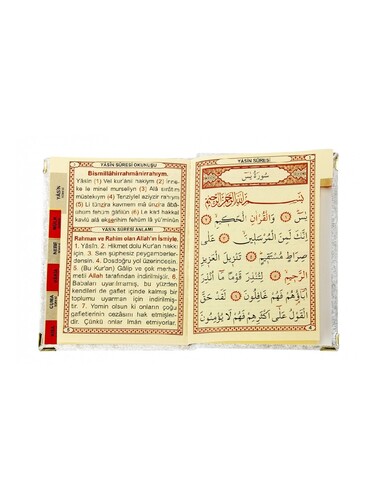 YÂSİN SÛRESİ OKUNUŞU
Bismillâhirrahmânirrahıym.
Yâsîn (1) Vel kur'ânil hakiym (2) İnne-
ke le minel murseliyn (3) Alâ sırâtim
müstekıym (4) Tenziylel aziyzir rahıym
(5) Li tünzira kavmen mâ ünzira âbâ-
ühüm fehüm ğâfilûn (6) Le kad hakkal
kavlü alâ ekserihim fehüm lâ yü'minûn
YÂSİN SÛRESİ ANLAMI
Rahman ve Rahim olan Allah'ın İsmiyle.
1. Yâsîn. 2. Hikmet dolu Kur'an hakkı
için. 3. Sen şüphesiz peygamberler-
densin. 4. Dosdoğru yol üzerindesin.
5. (Bu Kur'an) Gâlip ve çok merha-
metli Allah'ın indirmesidir. 6.
Babaları uyarılmamış, bu yüzden
kendileri de gaflet içinde kalmış bir
toplumu uyarman için indirilmiş-
tir. 7. Yemin olsun ki onların çoğu
gafletlerinin cezasını hak etmişler-
dir. Çünkü onlar îman etmiyorlar.
YÂSİN
CUMA
YÂSİN SÛRESİ
سُورَةُ يٰسٓ
بِسْمِ اللّٰهِ الرَّحْمٰنِ الرَّحِيمِ
يٰسٓ ﴿١﴾ وَالْقُرْاٰنِ الْحَكِيمِ ﴿٢﴾
اِنَّكَ لَمِنَ الْمُرْسَلِينَ ﴿٣﴾ عَلٰى
صِرَاطٍ مُسْتَقِيمٍ ﴿٤﴾ تَنْزِيلَ الْعَزِيزِ
الرَّحِيمِ ﴿٥﴾ لِتُنْذِرَ قَوْمًا مَٓا اُنْذِرَ
اٰبَٓاؤُ۬هُمْ فَهُمْ غَافِلُونَ ﴿٦﴾ لَقَدْ حَقَّ
الْقَوْلُ عَلٰٓى اَكْثَرِهِمْ فَهُمْ لَا يُؤْمِنُونَ